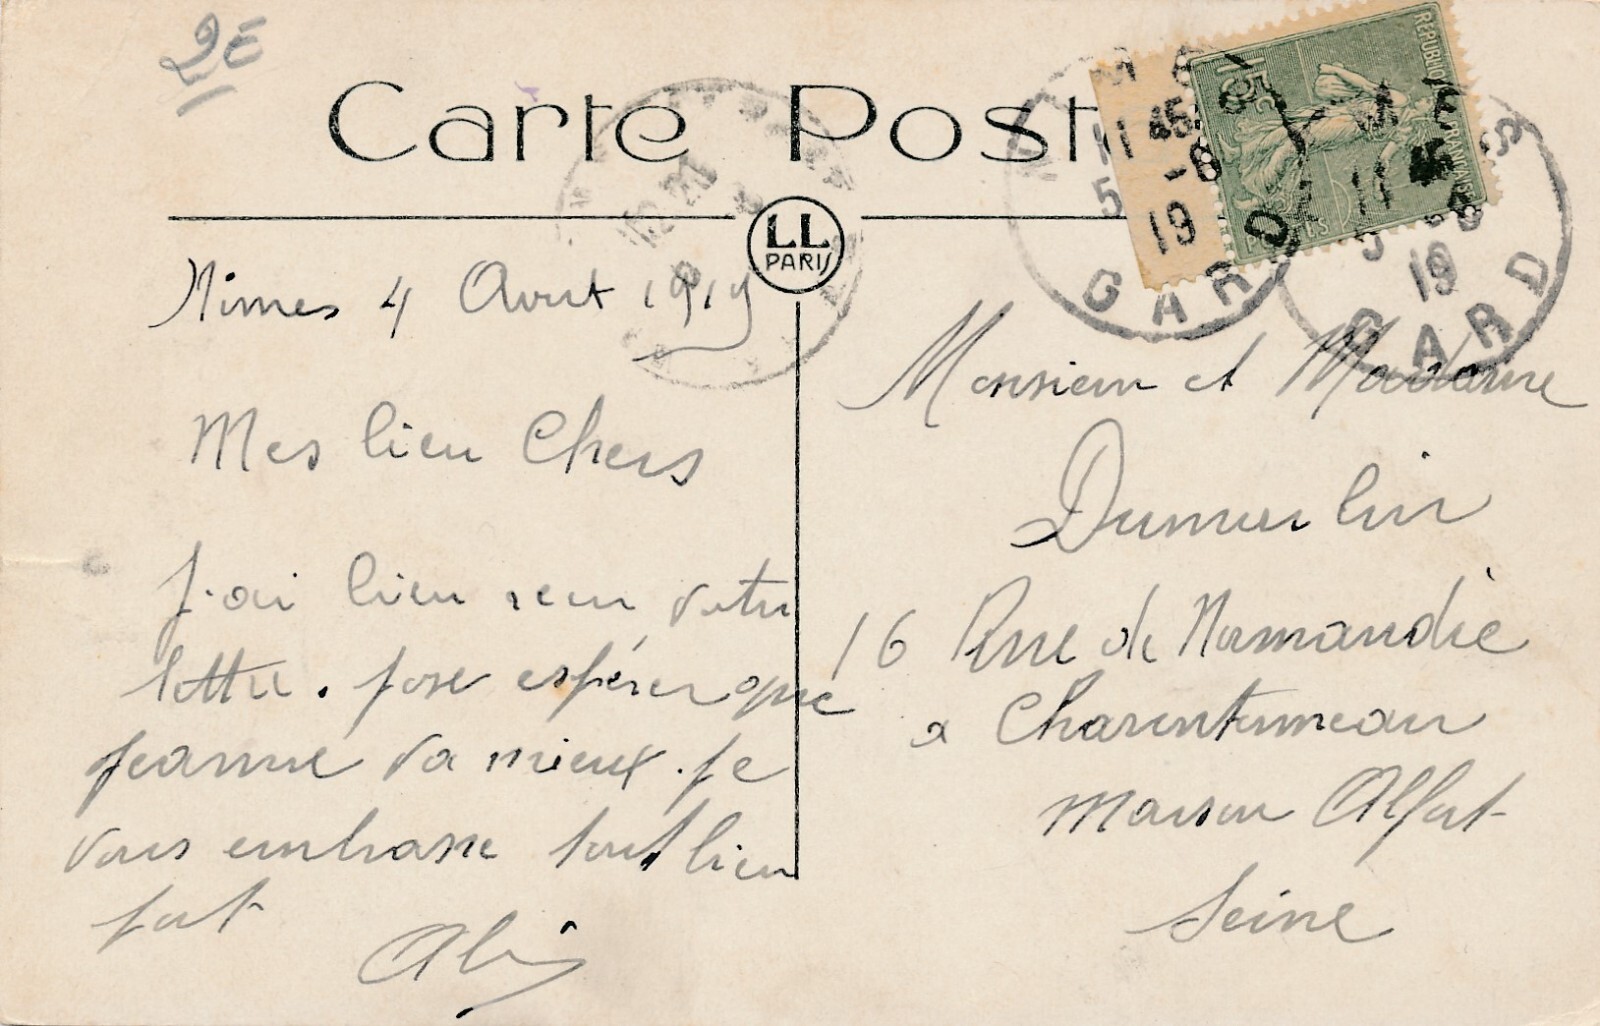 2E
Carte Post
LL
PARIS
REPUBLIQUE FRANCAISE
15c
POSTES
NIMES
11 45
5 -8
19
GARD
NIMES
11 45
5 -8
19
GARD
Nimes 4 Aout 1919
Mes bien Chers
J'ai bien recu votre
lettre. j'ose espérer que
Jeanne va mieux. je
vous embrasse tout bien
fort
Monsieur et Madame
Dumoulin
16 Rue de Normandie
a Charentonneau
Maison Alfort
Seine